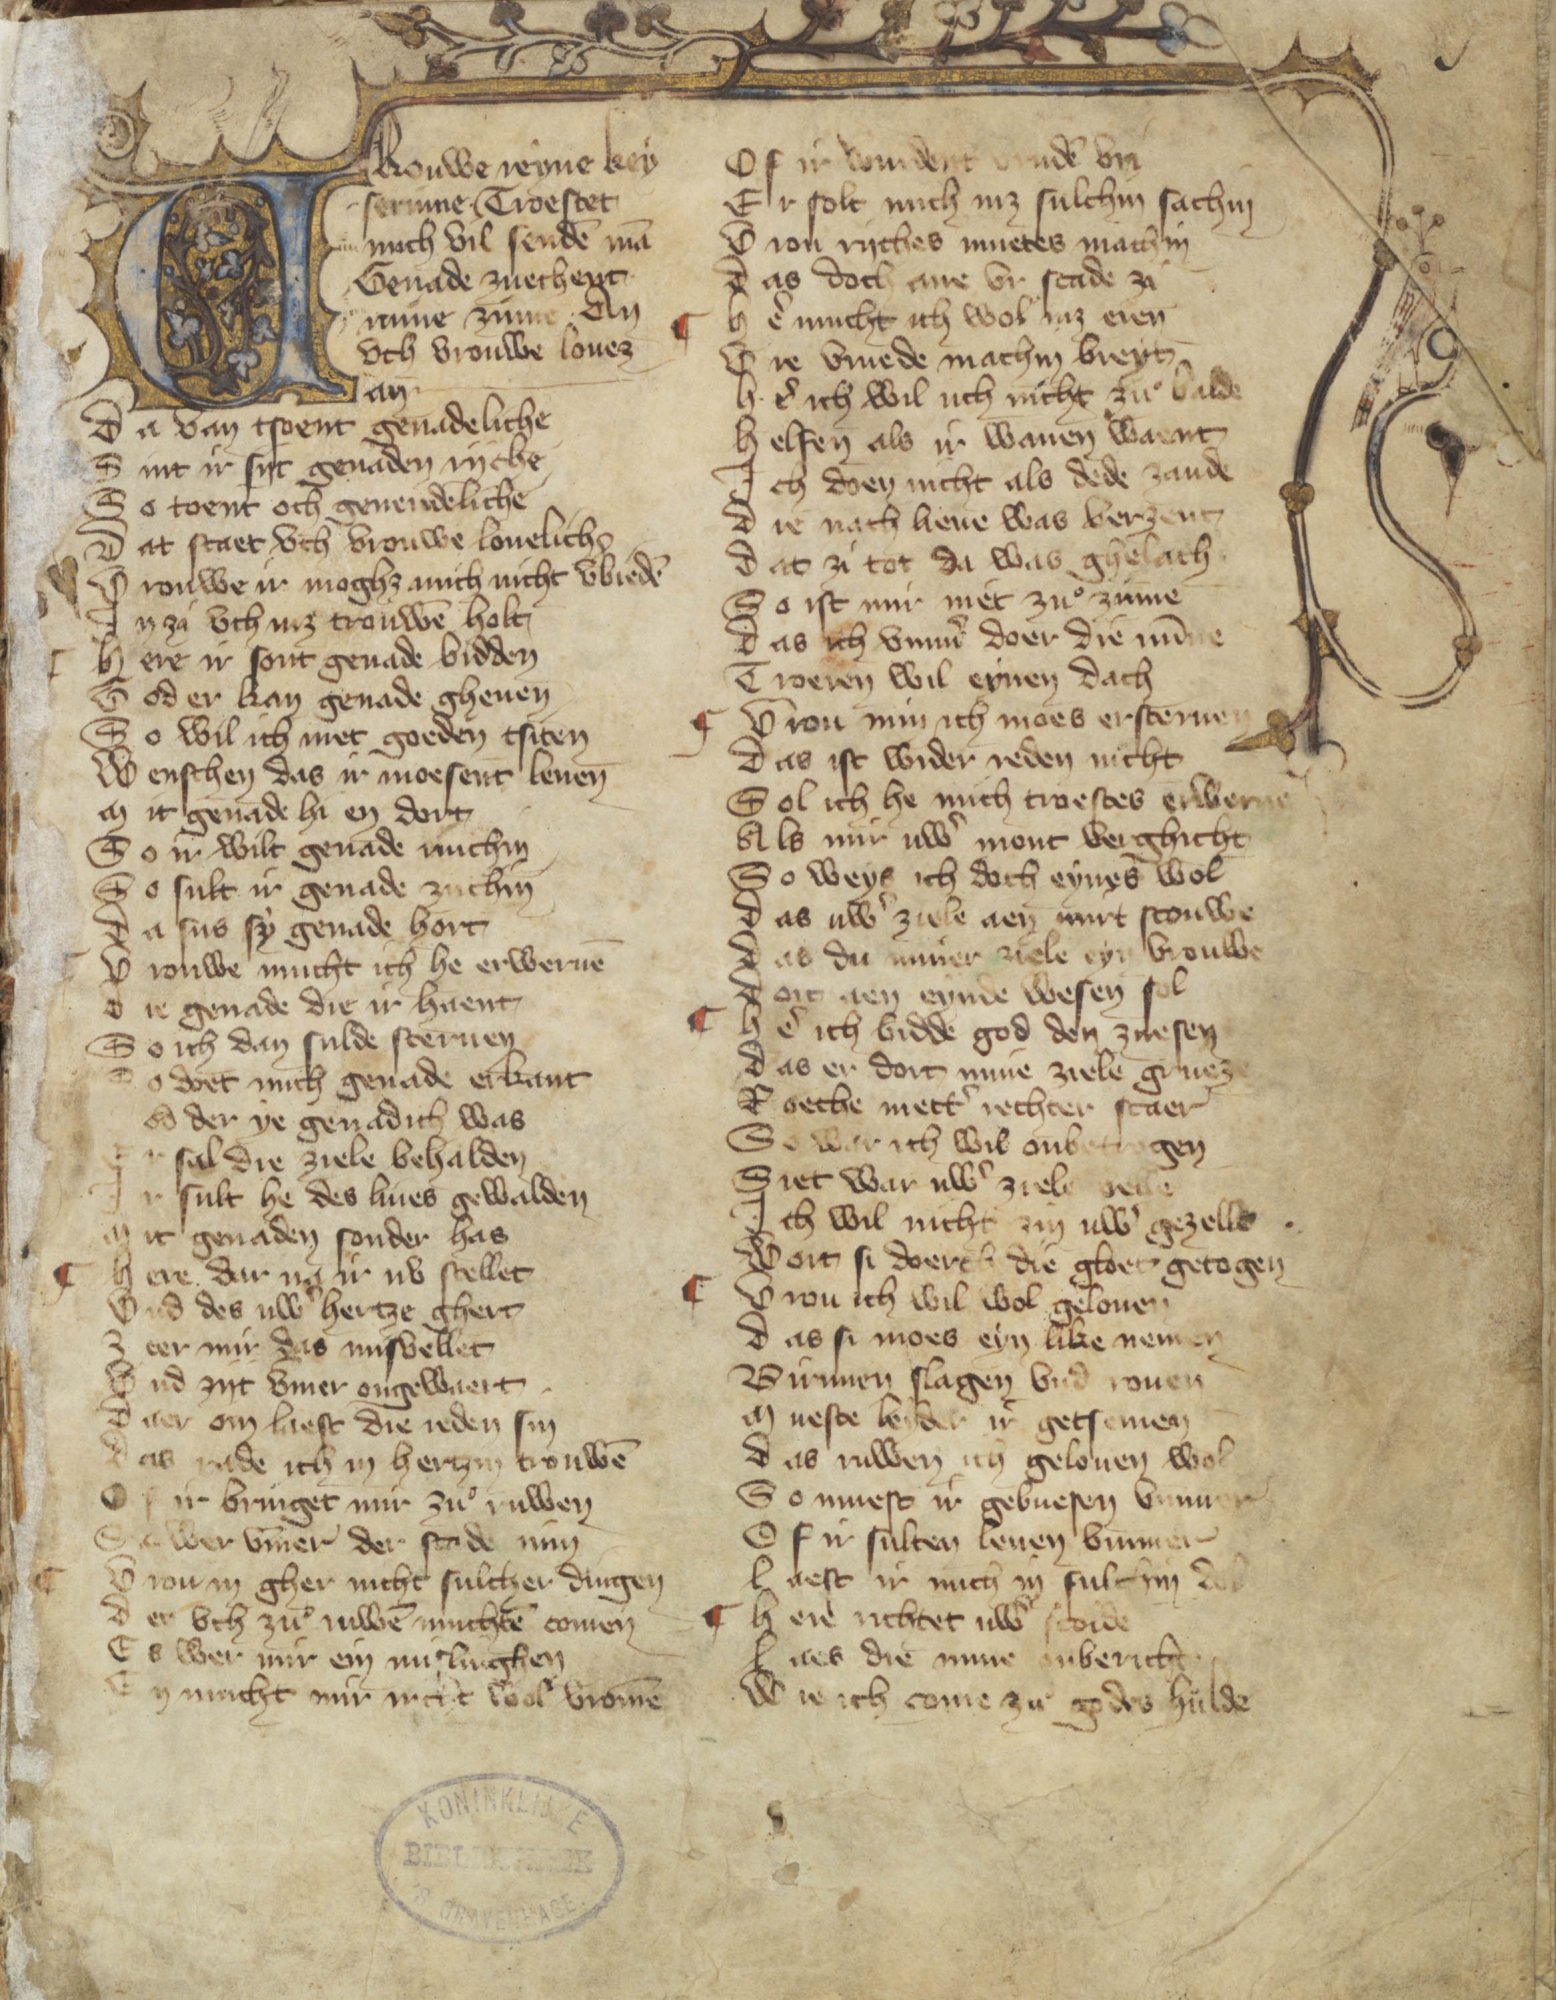 Vrouwe reyne key
serinne Troestet
mich vil sendē mā
Genade zuechent
mine zinne An
vch vrouwe louez
an
Da van tsoent genadeliche
Sint ir sijt genaden rijche
So toent och genendeliche
Dat staet vch vrouwe louelich
Vrouwe ir moghz mich nicht vbiedē
In zi vch mz trouwē holt
Here ir sont genade bidden
God er kan genade gheuen
So wil ich met goeden tsiten
Wenschen das ir moesent leuen
Mit genade hi en dort
So ir wilt genade michin
So sult ir genade zuchin
Da sus sy genade hort
Vrouwe mucht ich he erweruē
Die genade die ir haent
So ich dan sulde steruen
So doet mich genade erkant
God der ye genadich was
Er sal die ziele behalden
Ir sult he des liues gewalden
Mit genaden sonder has
Here dar na ir uv stellet
Vnd des uw' hertze ghert
Zeer mir das misvellet
Vnd zijt vmer ongewaert
Daer om laest die reden sin
Das rade ich in hertzin trouwē
Of ir bringet mir zu° ruwen
So wer vm̄er der scade min
Vrou in gher nicht sulcher dingen
Der vch zu° ruwē muchtē comen
Es wer mir ein mislinghen
En mucht mir nicht wol vromē
Of ir wurdent vrudē vri
Er solt mich mz sulchin sachin
Vrou rijches muetes machin
Das doch ane vr scade zi
Hē mucht ich wol mz eren
Die vruede machin breyt
Hē ich wil uch nicht zu° balde
Helfen als ir wanen waent
Ich doen nicht als dede zande
Die nach lieue was verzent
Dat zi tot da was ghelach
So ist mir niet zu° zinne
Das ich vmm' doer die minne
Troeren wil eynen dach
Vrou min ich moes ersteruen
Das ist wider reden nicht
Sol ich he mich troestes erweruē
Als mir uw' mont verghicht
So weys ich doch eynes wol
Das uw' ziele aen mirt scouwe
Das du miner ziele eyn vrouwe
Dort aen eynde wesen sol
Hē ich bidde god den zuesen
Das er dort mine ziele grueze
Roeche mett' rechter scaer
So war ich wil onbetrogen
Siet war uw' ziele
Ich wil nicht zin uw' gezelle
Wort si doerch die gloet getogen
Vrou ich wil wol gelouen
Das si moes eyn like nemen
Birnnen slagen vnd rouen
Mueste leyder ir getsemen
Das ruwen ich gelouen wol
So muest ir gebuesen vmmer
Of ir sulten leuen vmmer
Laest ir mich in sulchin dol
Here richtet uw' scolde
Laes die mine onbericht
Wie ich come zu° godes hulde
KONINKLIJKE
BIBLIOTHEEK
'S GRAVENHAGE